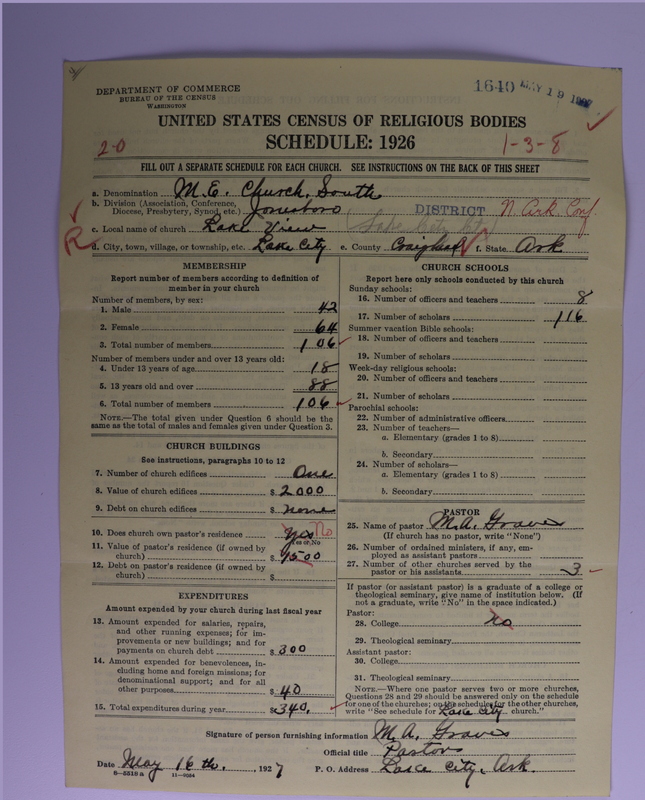 1640 MAY 19 1927
DEPARTMENT OF COMMERCE
BUREAU OF THE CENSUS
WASHINGTON
UNITED STATES CENSUS OF RELIGIOUS BODIES
2-0 SCHEDULE: 1926 1-3-8
FILL OUT A SEPARATE SCHEDULE FOR EACH CHURCH. SEE INSTRUCTIONS ON THE BACK OF THIS SHEET
a. Denomination M.E. Church, South
b. Division (Association, Conference, Diocese, Presbytery, Synod, etc.) Jonesboro DISTRICT N. Ark. Conf.
c. Local name of church Lake View Lake City
R d. City, town, village, or township, etc. Lake City e. County Craighead f. State Ark
MEMBERSHIP
Report number of members according to definition of
member in your church
Number of members, by sex:
1. Male 42
2. Female 64
3. Total number of members 106
Number of members under and over 13 years old:
4. Under 13 years of age 18
5. 13 years old and over 88
6. Total number of members 106
NOTE.—The total given under Question 6 should be the
same as the total of males and females given under Question 3.
CHURCH BUILDINGS
See instructions, paragraphs 10 to 12
7. Number of church edifices One
8. Value of church edifices $ 2000
9. Debt on church edifices $ none
10. Does church own pastor's residence yes No
Yes or No
11. Value of pastor's residence (if owned by
church) $ 1500
12. Debt on pastor's residence (if owned by
church) $
EXPENDITURES
Amount expended by your church during last fiscal year
13. Amount expended for salaries, repairs,
and other running expenses; for im-
provements or new buildings; and for
payments on church debt $ 300
14. Amount expended for benevolences, in-
cluding home and foreign missions; for
denominational support; and for all
other purposes $ 40
15. Total expenditures during year $ 340.
CHURCH SCHOOLS
Report here only schools conducted by this church
Sunday schools:
16. Number of officers and teachers 8
17. Number of scholars 116
Summer vacation Bible schools:
18. Number of officers and teachers
19. Number of scholars
Week-day religious schools:
20. Number of officers and teachers
21. Number of scholars
Parochial schools:
22. Number of administrative officers
23. Number of teachers—
a. Elementary (grades 1 to 8)
b. Secondary
24. Number of scholars—
a. Elementary (grades 1 to 8)
b. Secondary
PASTOR
25. Name of pastor M.A. Graves
(If church has no pastor, write "None")
26. Number of ordained ministers, if any, em-
ployed as assistant pastors
27. Number of other churches served by the
pastor or his assistants 3
If pastor (or assistant pastor) is a graduate of a college or
theological seminary, give name of institution below. (If
not a graduate, write "No" in the space indicated.)
Pastor:
28. College no
29. Theological seminary
Assistant pastor:
30. College
31. Theological seminary
NOTE.—Where one pastor serves two or more churches,
Questions 28 and 29 should be answered only on the schedule
for one of the churches; on the schedule for the other churches,
write "See schedule for Lake City church."
Signature of person furnishing information M.A. Graves
Official title Pastor
Date May 16th, 1927 P. O. Address Lake City, Ark.
8-5318 a 11-9034